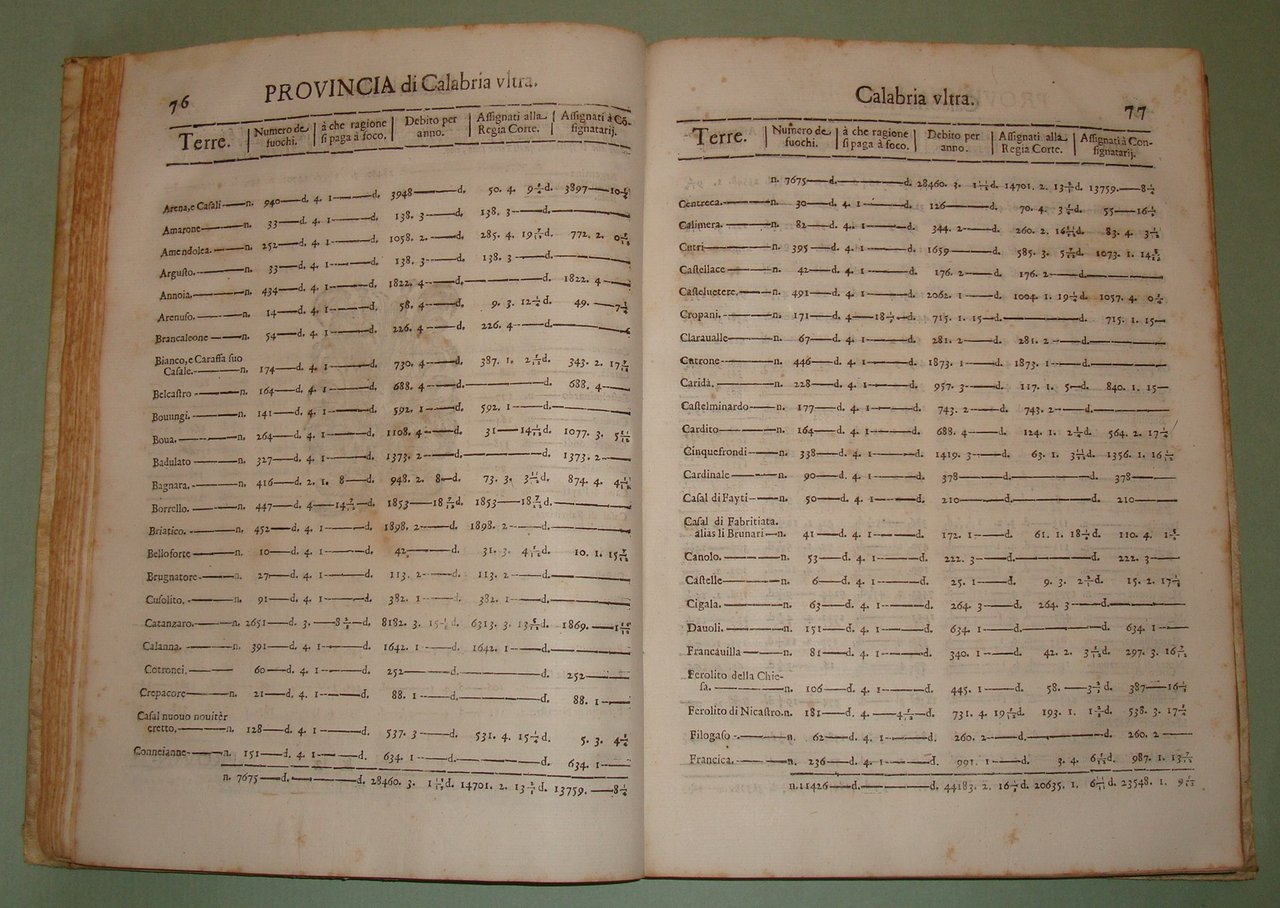 76
PROVINCIA di Calabria vltra.
Terre. Numero de fuochi. à che ragione si paga à foco. Debito per anno. Assignati alla Regia Corte. Assignati à Consignatarij.
Arena, e Casali—n. 940—d. 4. 1—d. 3948—d. 50. 4. d. 3897—
Amarone—n. 33—d. 4. 1—d. 138. 3—d. 138. 3—d.
Amendolea.—n. 252—d. 4. 1—d. 1058. 2—d. 285. 4. d. 772. 2.
Argusto.—n. 33—d. 4. 1—d. 138. 3—d. 138. 3—d.
Annoia.—n. 434—d. 4. 1—d. 1822. 4—d. —d. 1822. 4—
Arenuso.—n. 14—d. 4. 1—d. 58. 4—d. 9. 3. d. 49.
Brancaleone—n. 54—d. 4. 1—d. 226. 4—d. 226. 4—d.
Bianco, e Caraffa suo
Casale.—n. 174—d. 4. 1—d. 730. 4—d. 387. 1. d. 343. 2.
Belcastro—n. 164—d. 4. 1—d. 688. 4—d. —d. 688. 4—
Bouungi.—n. 141—d. 4. 1—d. 592. 1—d. 592. 1—d.
Boua.—n. 264—d. 4. 1—d. 1108. 4—d. 31—d. 1077. 3.
Badulato—n. 327—d. 4. 1—d. 1373. 2—d. —d. 1373. 2—
Bagnara.—n. 416—d. 2. 1. 8—d. 948. 2. 8—d. 73. 3. d. 874. 4.
Borrello.—n. 447—d. 4—d. 1853—d. 1853—d.
Briatico.—n. 452—d. 4. 1—d. 1898. 2—d. 1898. 2—d.
Belloforte—n. 10—d. 4. 1—d. 42—d. 31. 3. d. 10. 1.
Brugnatore—n. 27—d. 4. 1—d. 113. 2—d. 113. 2—d.
Cusolito.—n. 91—d. 4. 1—d. 382. 1—d. 382. 1—d.
Catanzaro.—n. 2651—d. 3.—d. 8182. 3. d. 6313. 3. d. 1869.—
Calanna.—n. 391—d. 4. 1—d. 1642. 1—d. 1642. 1—d.
Cotronei.— 60—d. 4. 1—d. 252—d. —d. 252—
Crepacore—n. 21—d. 4. 1—d. 88. 1—d. —d. 88. 1—
Casal nuouo nouitèr
eretto.—n. 128—d. 4. 1—d. 537. 3—d. 531. 4. d. 5. 3.
Conneianne—n. 151—d. 4. 1—d. 634. 1—d. —d. 634. 1—
n. 7675—d.—d. 28460. 3. d. 14701. 2. d. 13759.—
Calabria vltra.
77
Terre. Numero de fuochi. à che ragione si paga à foco. Debito per anno. Assignati alla Regia Corte. Assignati à Consignatarij.
n. 7675—d.—d. 28460. 3. d. 14701. 2. d. 13759.—
Centreca.—n. 30—d. 4. 1—d. 126—d. 70. 4. d. 55—
Calimera.—n. 82—d. 4. 1—d. 344. 2—d. 260. 2. d. 83. 4.
Cutri—n. 395—d. 4. 1—d. 1659—d. 585. 3. d. 1073. 1.
Castellace—n. 42—d. 4. 1—d. 176. 2—d. 176. 2—d.
Casteluetere.—n. 491—d. 4. 1—d. 2062. 1—d. 1004. 1. d. 1057. 4.
Cropani.—n. 171—d. 4—d. 715. 1. 15—d. —d. 715. 1. 15—
Claraualle—n. 67—d. 4. 1—d. 281. 2—d. 281. 2—d.
Cutrone—n. 446—d. 4. 1—d. 1873. 1—d. 1873. 1—d.
Caridà.—n. 228—d. 4. 1—d. 957. 3—d. 117. 1. 5—d. 840. 1. 15—
Castelminardo—n. 177—d. 4. 1—d. 743. 2—d. 743. 2—d.
Cardito—n. 164—d. 4. 1—d. 688. 4—d. 124. 1. d. 564. 2.
Cinquefrondi—n. 338—d. 4. 1—d. 1419. 3—d. 63. 1. d. 1356. 1.
Cardinale—n. 90—d. 4. 1—d. 378—d. —d. 378—
Casal di Fayti—n. 50—d. 4. 1—d. 210—d. —d. 210—
Casal di Fabritiata.
alias li Brunari—n. 41—d. 4. 1—d. 172. 1—d. 61. 1. d. 110. 4.
Canolo.—n. 53—d. 4. 1—d. 222. 3—d. —d. 222. 3—
Castelle—n. 6—d. 4. 1—d. 25. 1—d. 9. 3. d. 15. 2.
Cigala.—n. 63—d. 4. 1—d. 264. 3—d. 264. 3—d.
Dauoli.—n. 151—d. 4. 1—d. 634. 1—d. —d. 634. 1—
Francauilla—n. 81—d. 4. 1—d. 340. 1—d. 42. 2. d. 297. 3.
Ferolito della Chie-
sa.—n. 106—d. 4. 1—d. 445. 1—d. 58.—d. 387—
Ferolito di Nicastro. n. 181—d. 4.—d. 731. 4. d. 193. 1. d. 538. 3.
Filogaso—n. 62—d. 4. 1—d. 260. 2—d. —d. 260. 2—
Francica.—n. 236—d. 4. 1—d. 991. 1—d. 3. 4. d. 987. 1.
n. 11426—d.—d. 44183. 2. d. 20635. 1. d. 23548. 1.